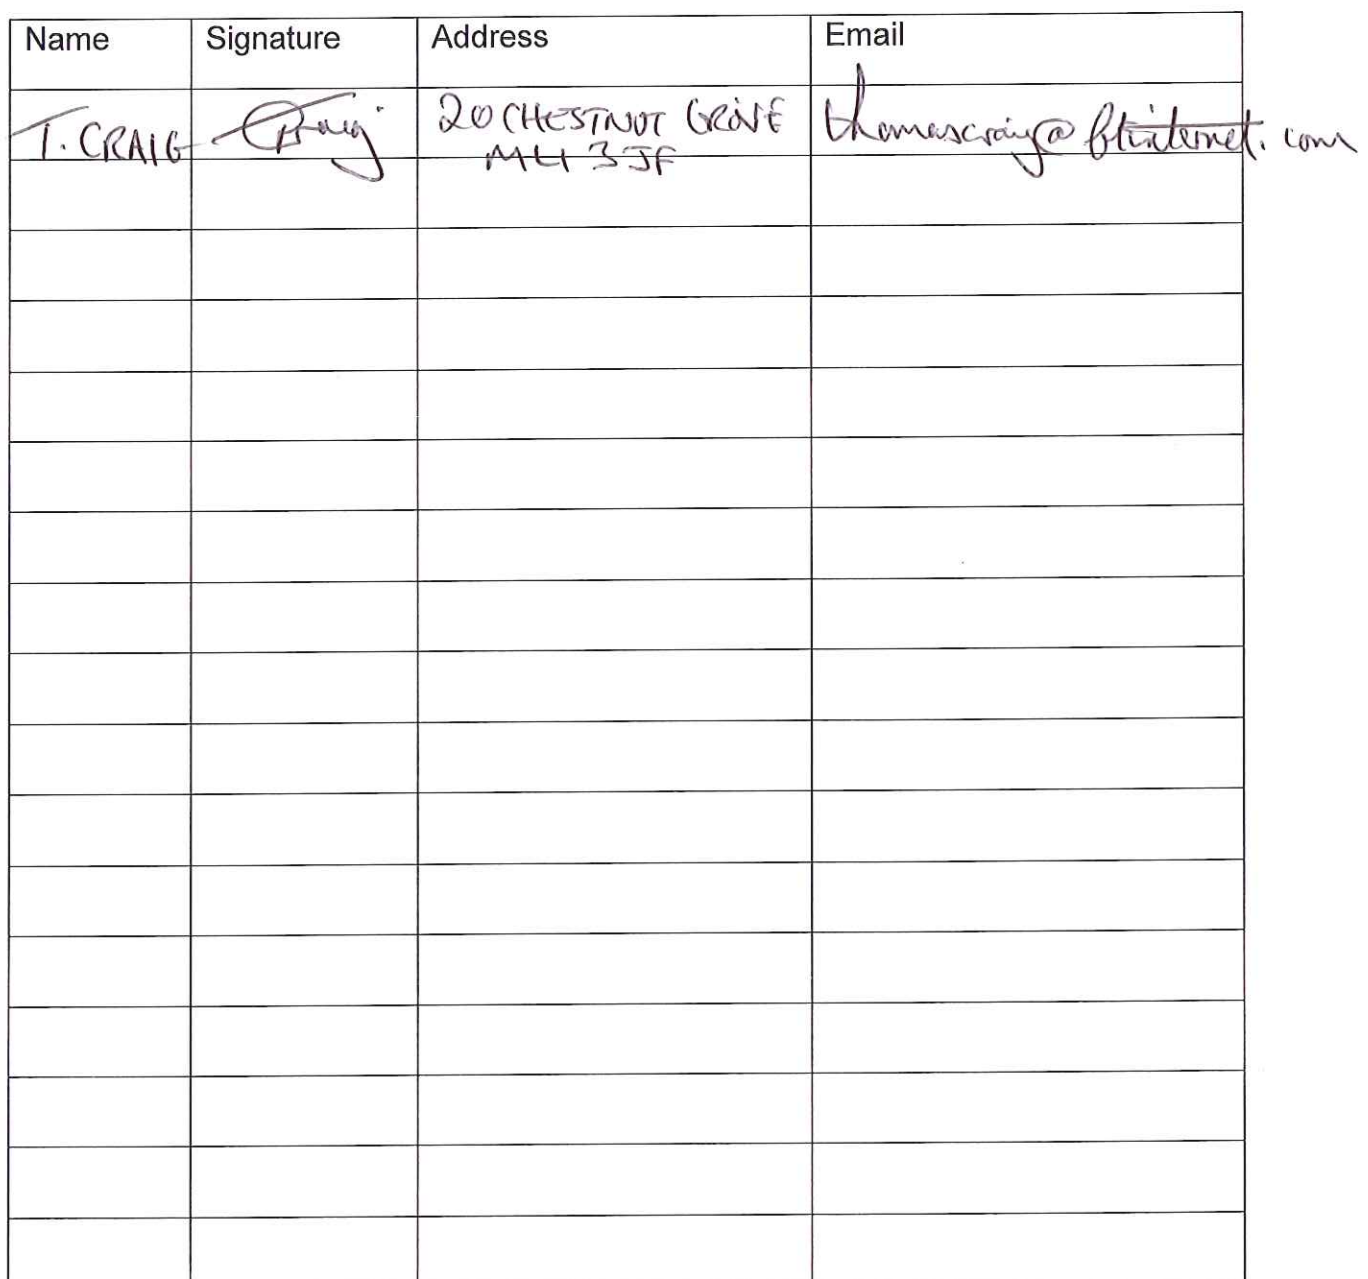 Name Signature Address Email
T. CRAIG TCraig 20 CHESTNUT GROVE thomascraig@btinternet.com
ML1 3JF